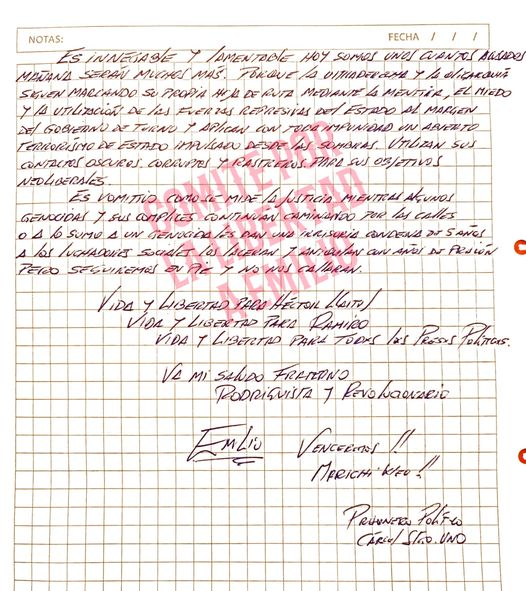 NOTAS:
FECHA / / /
ES INNEGABLE Y LAMENTABLE HOY SOMOS UNOS CUANTOS ACUSADOS
MAÑANA SERÁN MUCHOS MAS. PORQUE LA ULTRADERECHA Y LA OLIGARQUÍA
SIGUEN MARCANDO SU PROPIA HOJA DE RUTA MEDIANTE LA MENTIRA, EL MIEDO
Y LA UTILIZACIÓN DE LAS FUERZAS REPRESIVAS DEL ESTADO AL MARGEN
DEL GOBIERNO DE TURNO Y APLICAN CON TODA IMPUNIDAD UN ABIERTO
TERRORISMO DE ESTADO IMPULSADO DESDE LAS SOMBRAS. UTILIZAN SUS
CONTACTOS OSCUROS, CORRUPTOS Y RASTREROS PARA SUS OBJETIVOS
NEOLIBERALES.
ES VOMITIVO COMO SE MIDE LA JUSTICIA, MIENTRAS ALGUNOS
GENOCIDAS Y SUS COMPLICES CONTINUAN CAMINANDO POR LAS CALLES
O A LO SUMO A UN GENOCIDA LES DAN UNA IRRISORIA CONDENA DE 5 AÑOS
A LOS LUCHADORES SOCIALES LOS LACERAN Y ANIQUILAN CON AÑOS DE PRISIÓN
PERO SEGUIREMOS EN PIE Y NO NOS CALLARAN.
VIDA Y LIBERTAD PARA HÉCTOR LLAITUL
VIDA Y LIBERTAD PARA RAMIRO
VIDA Y LIBERTAD PARA TODAS LOS PRESOS POLÍTICOS.
VA MI SALUDO FRATERNO
RODRIGUISTA Y REVOLUCIONARIO
EMILIO
VENCEREMOS !!
MARICHI WEO !!
PRISIONERO POLÍTICO
CÁRCEL STGO. UNO
COMITE POR
LA LIBERTAD
A EMILIO